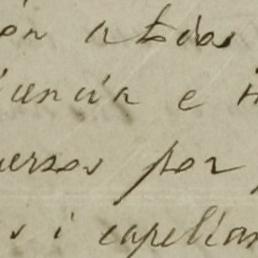 ón atodos
iencia e i
uersos por
s i capellan